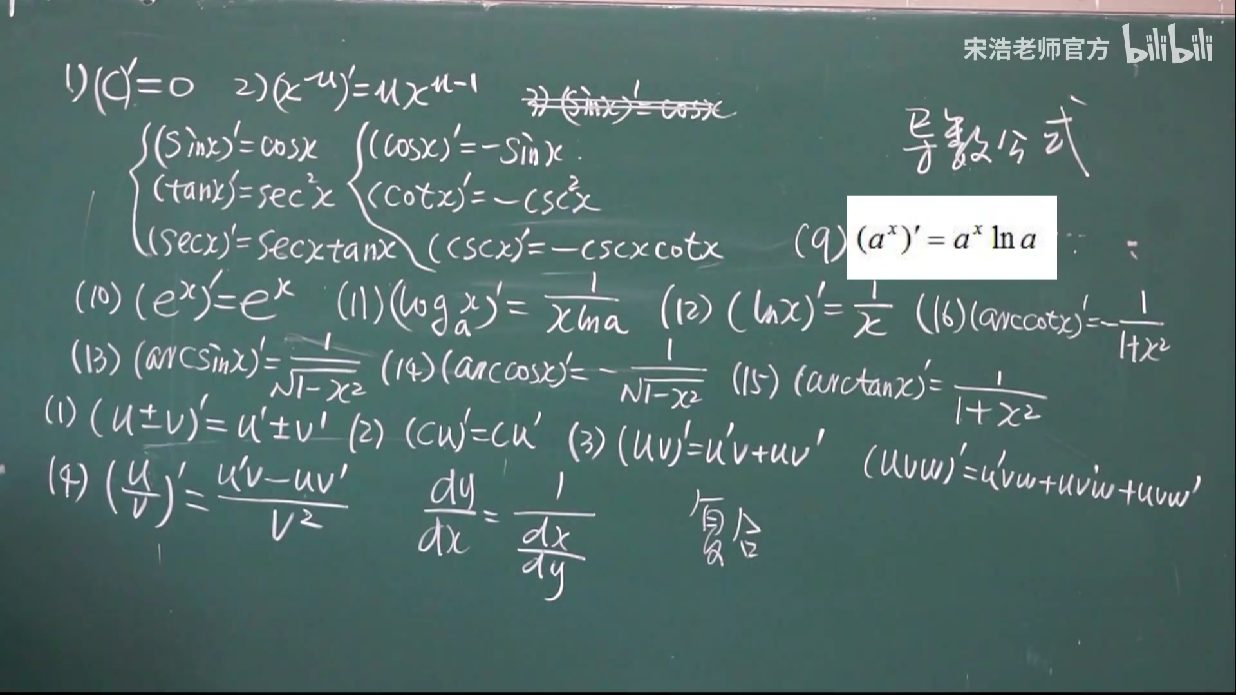 宋浩老师官方 bilibili
1) (C)'=0 2) (x^u)'=ux^{u-1} 3) (sinx)'=cosx
导数公式
(sinx)'=cosx (cosx)'=-sinx.
(tanx)'=sec²x (cotx)'=-csc²x
(secx)'=secxtanx (cscx)'=-cscxcotx (9) (a^x)'=a^x ln a
(10) (e^x)'=e^x (11) (log_a^x)'=1/(xlna) (12) (lnx)'=1/x (16) (arccotx)'=-1/(1+x²)
(13) (arcsinx)'=1/√(1-x²) (14) (arccosx)'=-1/√(1-x²) (15) (arctanx)'=1/(1+x²)
(1) (u±v)'=u'±v' (2) (Cu)'=Cu' (3) (uv)'=u'v+uv' (uvw)'=u'vw+uv'w+uvw'
(4) (u/v)'=(u'v-uv')/v² dy/dx=1/(dx/dy) 复合